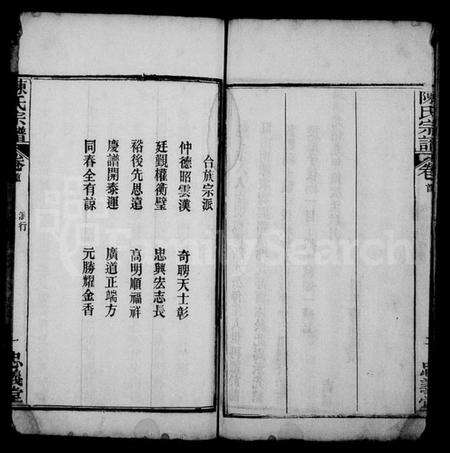 陳氏宗譜
卷首
忠義堂
台族宗派
仲德昭雲漢 奇聘天士彰
廷觀權衡璧 忠興宏志長
裕後先恩遠 高明順福祥
慶譜開泰運 廣道正端方
同春全有諒 元勝耀金香
陳氏宗譜
卷首
派行
一
忠義堂
FamilySearch